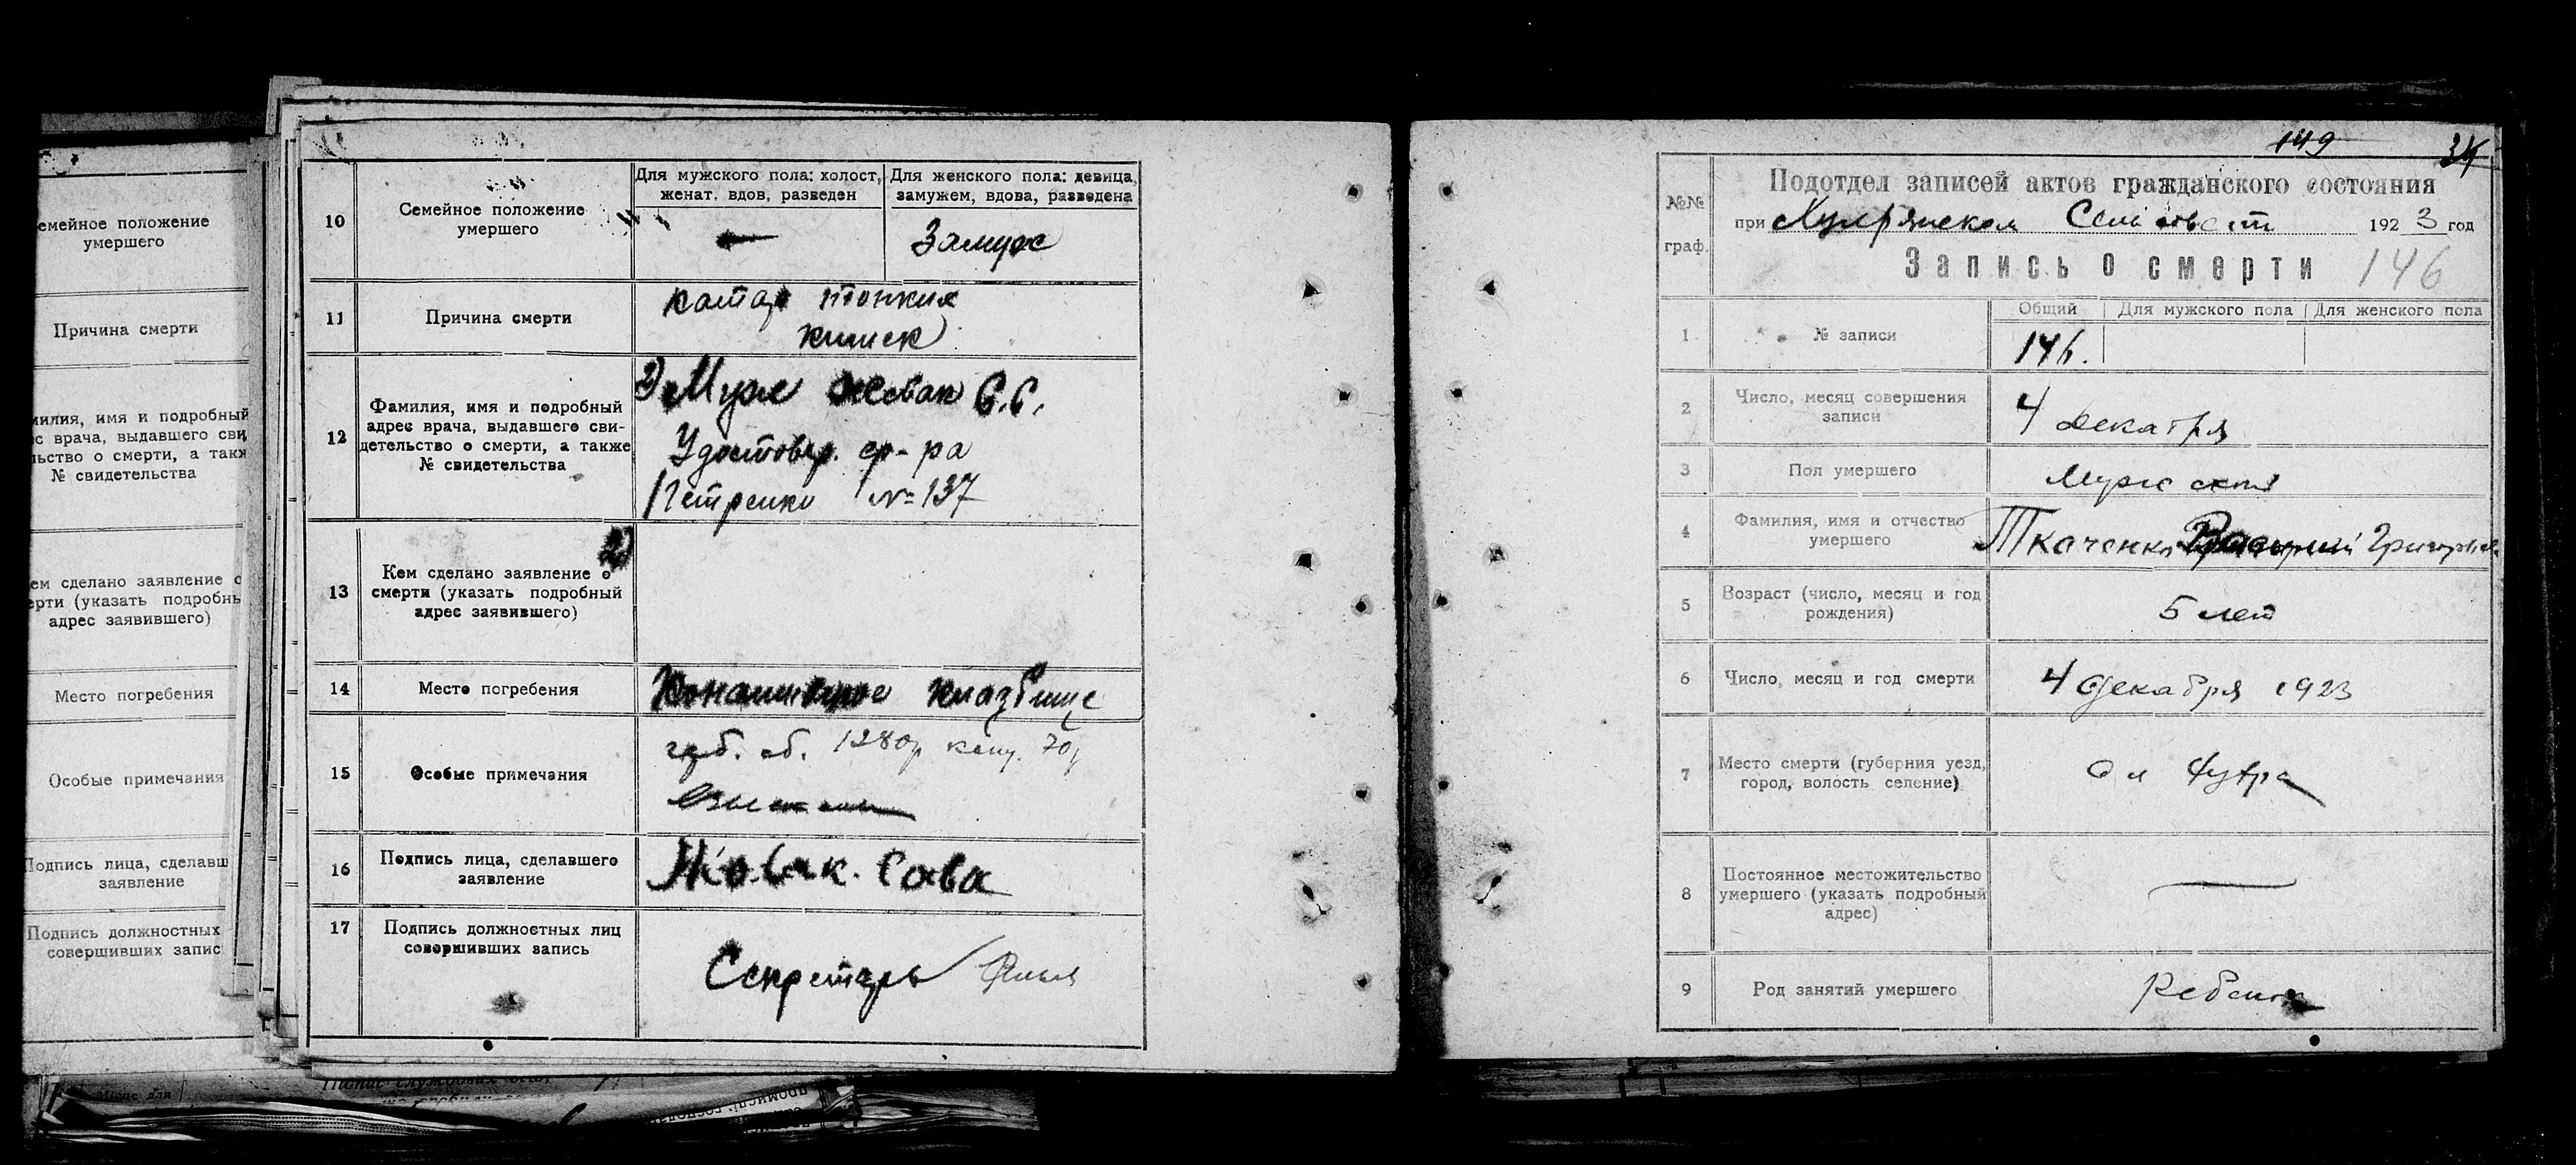 емейное положение
умершего
Причина смерти
милия, имя и подробный
с врача, выдавшего сви
льство о смерти, а такж
№ свидетельства
ем сделано заявление о
ерти (указать подробны
адрес заявившего)
Место погребения
Особые примечания
Подпись лица, сделавш
заявление
Подпись должностных
совершивших запис
10
Семейное положение
умершего
Для мужского пола: холост,
женат. вдов, разведен
Для женского пола: девица,
замужем, вдова, разведена
Замуж
11
Причина смерти
катар тонких
кишек
12
Фамилия, имя и подробный
адрес врача, выдавшего сви-
детельство о смерти, а также
№ свидетельства
2) Муж С.С.
Удостовер. ф-ра
Петренко № 137
13
2)
Кем сделано заявление о
смерти (указать подробный
адрес заявившего)
14
Место погребения
кладбище
15
Особые примечания
сб. 1280р канц. 70р
16
Подпись лица, сделавшего
заявление
Сава
17
Подпись должностных лиц
совершивших запись
Секретарь
149
34
№№
граф.
Подотдел записей актов гражданского состояния
при 192 3 год
Запись о смерти 146
1
№ записи
Общий
Для мужского пола
Для женского пола
146.
2
Число, месяц совершения
записи
4 декабря
3
Пол умершего
Мужской
4
Фамилия, имя и отчество
умершего
Ткаченко Григорьев
5
Возраст (число, месяц и год
рождения)
5 лет
6
Число, месяц и год смерти
4 декабря 1923
7
Место смерти (губерния уезд,
город, волость селение)
8
Постоянное местожительство
умершего (указать подробный
адрес)
9
Род занятий умершего
Ребенок